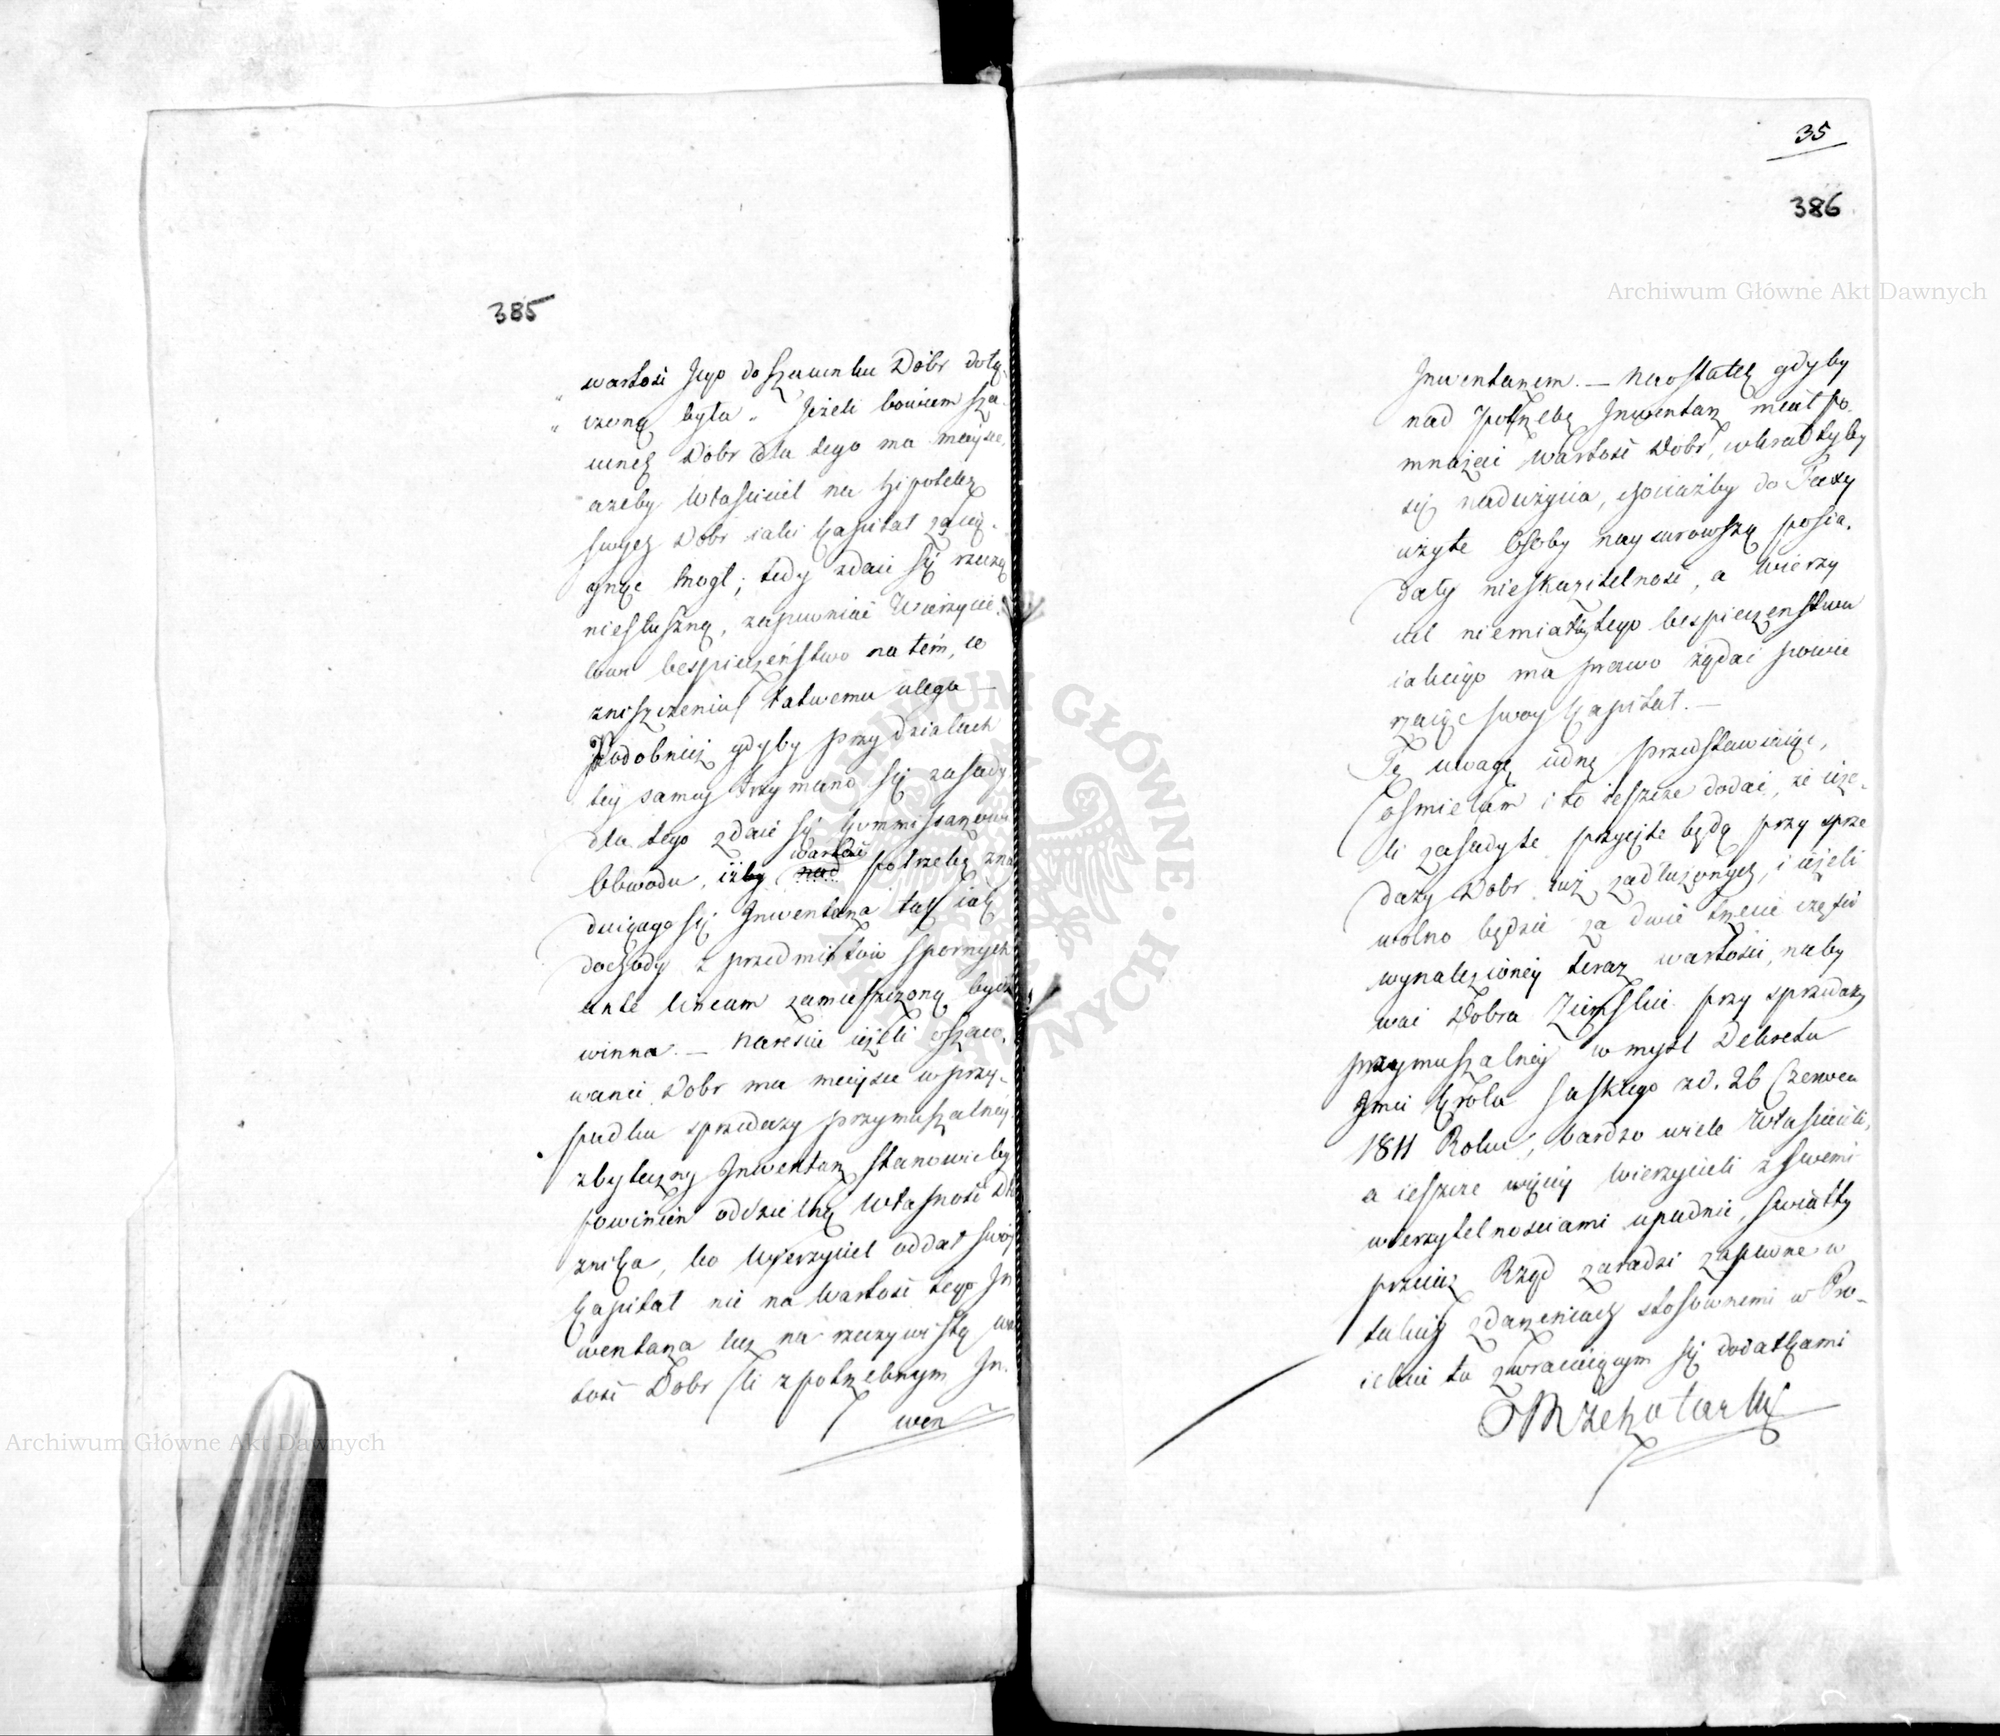 385
wartość Jego do szacunku Dóbr dołą-
„ czoną była „ Jeżeli bowiem sza-
„ unek Dóbr dla tego ma mieysce,
ażeby Właściciel na Hipotekę
swych Dóbr iaki Kapitał zacią-
gnąć mogł; tedy zdaie się rzeczą
niesłuszną, zapewniać Wierzycie-
lowi bespieczeństwo na tém, co
zniszczeniu łatwemu ulega —
Podobnież gdyby przy działach
tey samey trzymano się zasady
dla tego zdaie się Kommissarzowi
Obwodu, iżby wartość nad potrzebę zna
duiącego się Inwentarza tak iak
dochody z przedmiotów spornych
ante lineam zamieszczoną bydź
winna. — Nareście ieżeli oszaco-
wanie Dobr ma mieysce w przy-
padku sprzedaży przymuszalney
zbyteczny Inwentarz stanowićby
powinien oddzielną własność Dłu
żnika, bo Wierzyciel oddał swóy
Kapitał nie na wartość tego In
wentarza lecz na rzeczywistą war
tość Dobr i z potrzebnym In-
wen
35
386
Inwentarzem. — Naostatek gdyby
nad potrzebę Inwentarz miał po-
mnażać wartość Dobr, wkradłyby
się nadużycia, chociażby do Taxy
użyte Osoby naysurowszą posia-
dały nieskazitelność, a Wierzy
ciel niemiałby tego bespieczeństwa
iakiego ma prawo żądać powie
rzaiąc swoy Kapitał. —
Tę uwagę iedną przedstawiaiąc,
ośmielam i to ieszcze dodać, że ieże-
li zasady te przyięte będą przy sprze
daży Dobr iuż zadłużonych, i ieżeli
wolno będzie za dwie trzecie części
wynalezioney teraz wartości, naby
wać Dobra Ziemskie przy sprzedaży
przymuszalney w myśl Dekretu
Jmci Króla Saskiego zd. 26 Czerwca
1811 Roku, bardzo wiele Właścicieli,
a ieszcze więcey Wierzycieli z swemi
wierzytelnościami upadnie, światły
przeciez Rząd zaradzi zapewne w
takich zdarzeniach stosownemi w Pro-
iekcie tu zwracaiącym się dodatkami